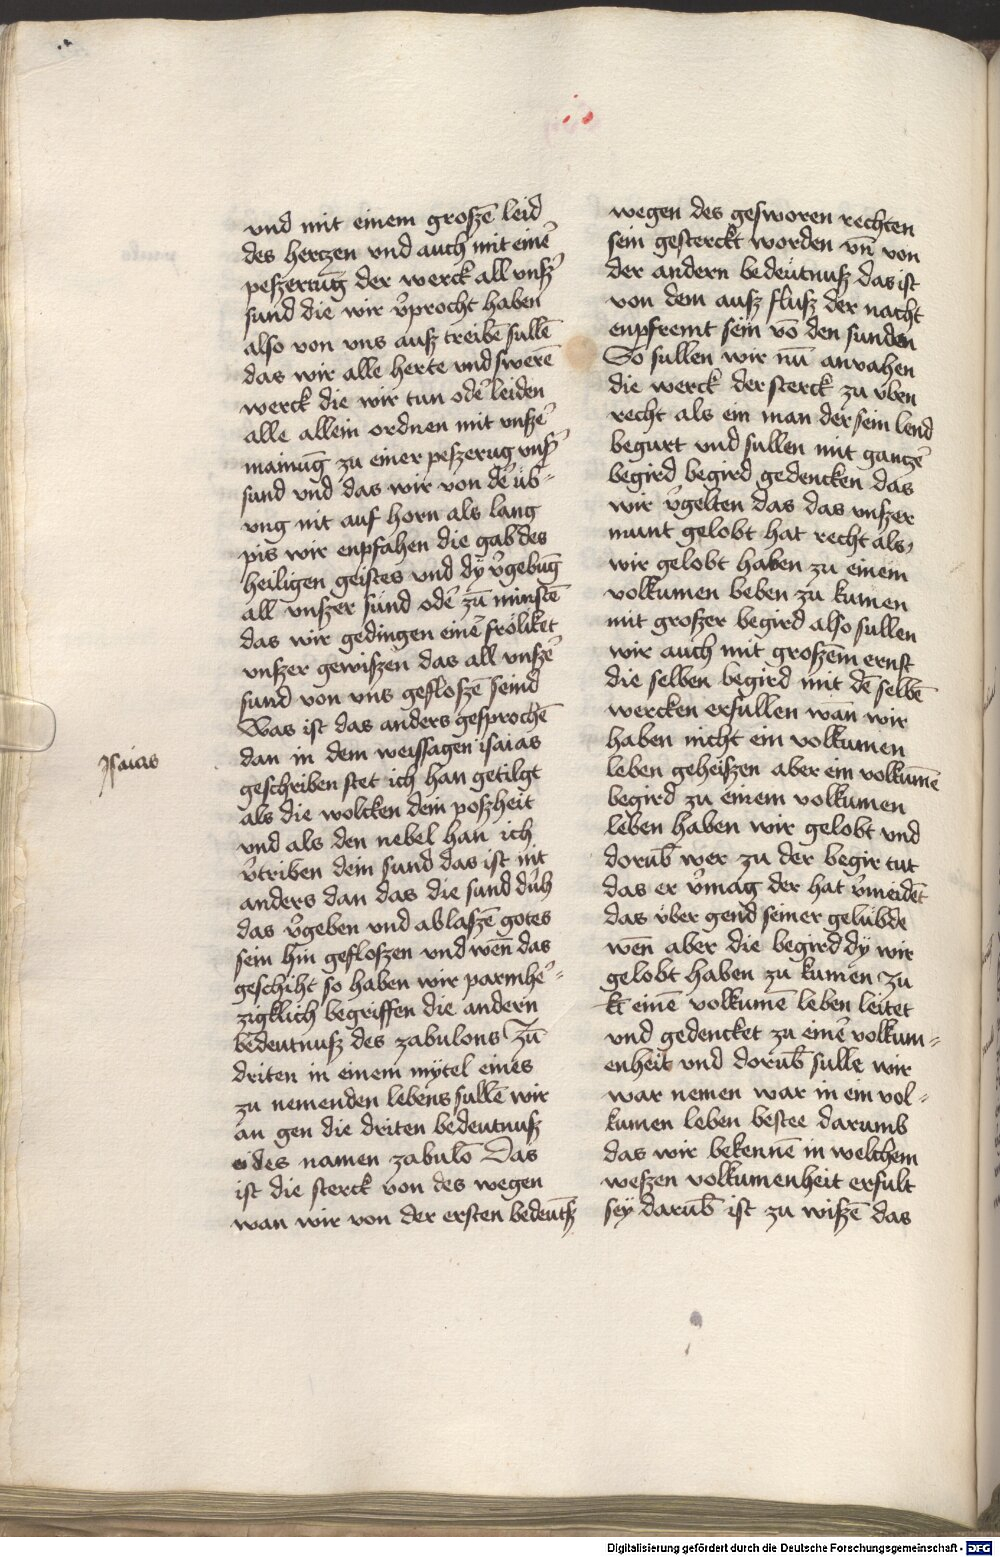 vnd mit einem groszē leid
des hertzen vnd auch mit einē
peszerung der werck all vnsz̄
sund die wir v̄procht haben
also von vns ausz treibē sullē
das wir alle herte vnd swerē
werck die wir tun odē leiden
alle allein ordnen mit vnszē
mainūg zu einer peszerūg vnsz̄
sund vnd das wir von dē üb-
ung nit auf horn als lang
pis wir enpfahen die gab des
heiligen geistes vnd dÿ v̄gebūg
all vnszer sünd odē zū minstē
das wir gedingen einē fröliket
vnszer gewiszen das all vnszē
sund von vns gefloszē seind
Was ist das anders gesprochē
dan in dem weissagen isaias
geschriben stet ich han getilgt
als die wolcken dein poszheit
vnd als den nebel han ich
v̄triben dein sund das ist nit
anders dan das die sund dūh
das v̄geben vnd ablaszē gotes
sein hin gefloszen vnd wēn das
geschiht so haben wir parmhē-
zigklich begriffen die andern
bedeutnusz des zabulons Zū
driten in einem mÿtel eines
zu nemenden lebens sullē wir
an gen die driten bedeutnusz
des namen zabulō Das
ist die sterck von des wegen
wan wir von der ersten bedeutsz
Isaias
wegen des gesworen rechten
sein gesterckt worden vn̄ von
der andern bedeütnusz das ist
von dem ausz flusz der nacht
enpfremt sein vō den sunden
So sullen wir nū anvahen
die werck der sterck zu v̈ben
recht als ein man der sein lend
begurt vnd sullen mit ganczē
begird begird gedencken das
wir v̄gelten das das vnszer
munt gelobt hat recht als
wir gelobt haben zu einem
volkumen beben zu kumen
mit groszer begird also sullen
wir auch mit groszēm ernst
die selben begird mit dē selbē
wercken erfullen wan̄ wir
haben nicht ein volkumen
leben geheiszen aber ein volkumē
begird zu einem volkumen
leben haben wir gelobt vnd
dorub̄ wer zu der begir tut
das er v̄mag der hat v̄meidēt
das v̈ber gend seiner gelübde
wēn aber die begird dÿ wir
gelobt haben zu kumen zu
einē volkumē leben leitet
vnd gedencket zu einē volkum-
enheit vnd dorub̄ sulle wir
war nemen war in ein vol-
kumen leben bestee darumb
das wir bekennē in welchem
weszen volkumenheit erfult
seÿ darub̄ ist zu wiszē das
Digitalisierung gefördert durch die Deutsche Forschungsgemeinschaft - DFG